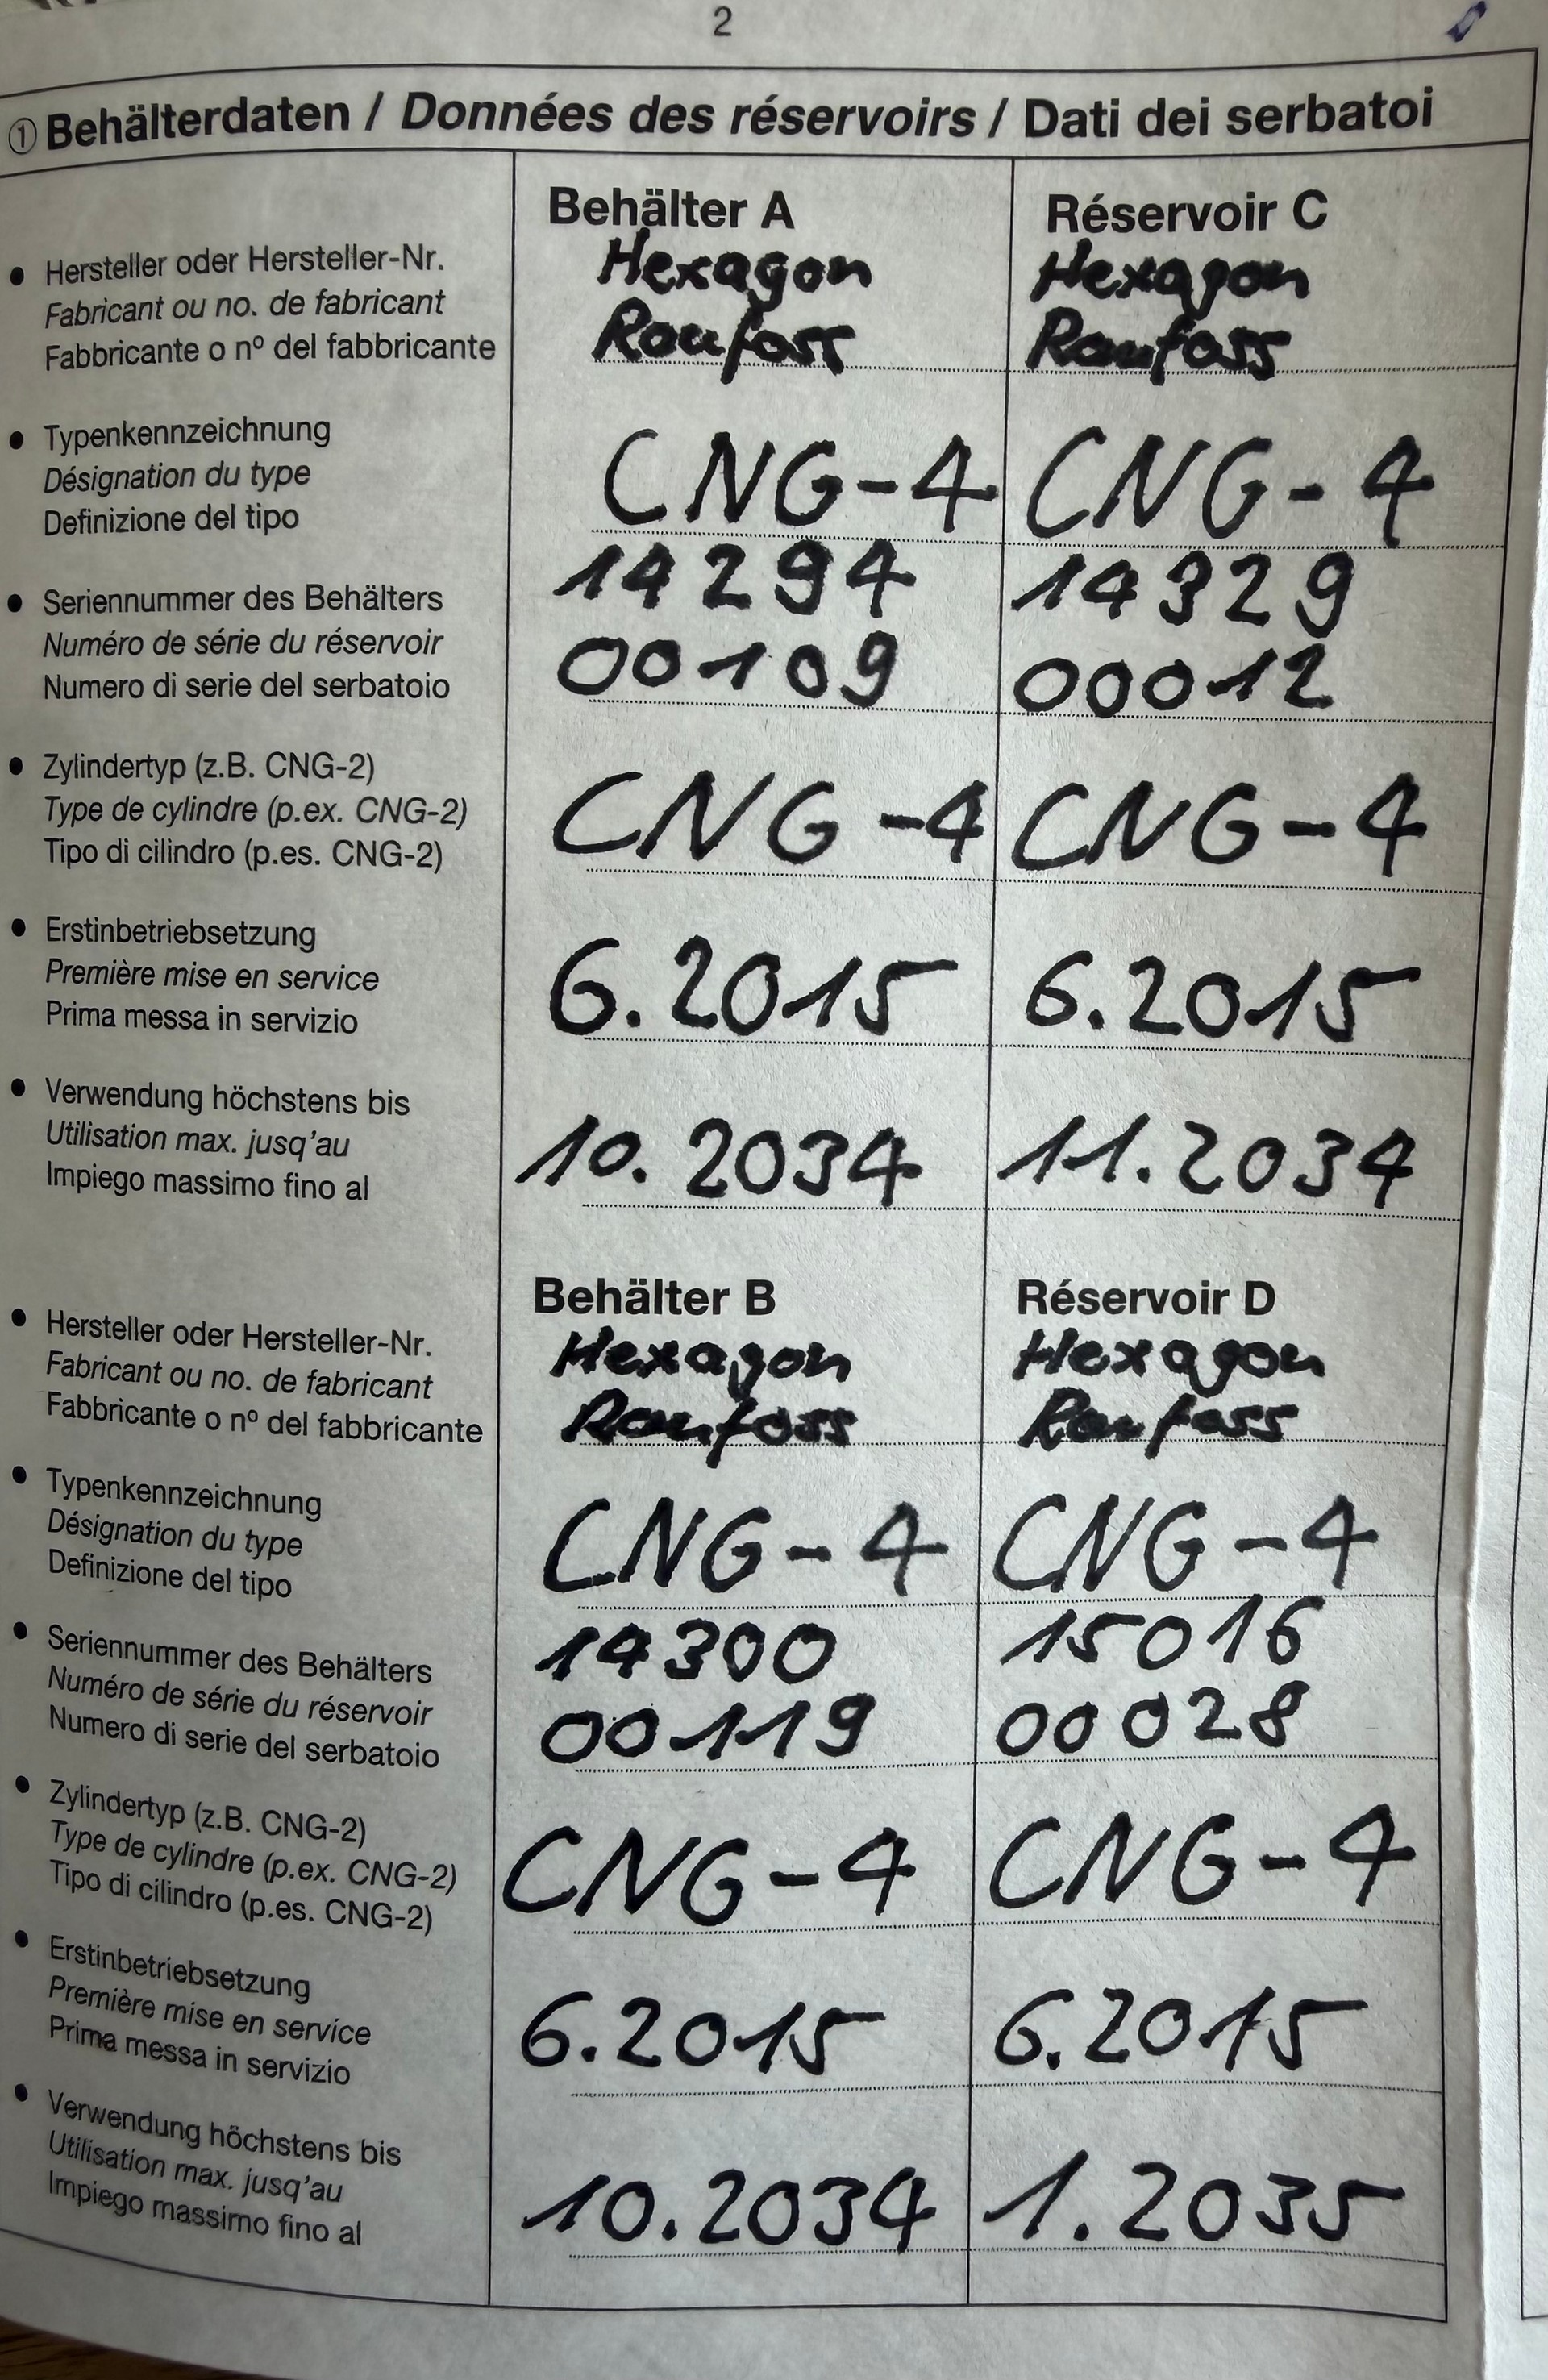 2
① Behälterdaten / Données des réservoirs / Dati dei serbatoi
Behälter A Réservoir C
• Hersteller oder Hersteller-Nr. Hexagon Hexagon
Fabricant ou no. de fabricant
Fabbricante o nº del fabbricante Raufoss Raufoss
• Typenkennzeichnung
Désignation du type CNG-4 CNG-4
Definizione del tipo
• Seriennummer des Behälters 14294 14329
Numéro de série du réservoir
Numero di serie del serbatoio 00109 00012
• Zylindertyp (z.B. CNG-2)
Type de cylindre (p.ex. CNG-2) CNG-4 CNG-4
Tipo di cilindro (p.es. CNG-2)
• Erstinbetriebsetzung
Première mise en service 6.2015 6.2015
Prima messa in servizio
• Verwendung höchstens bis
Utilisation max. jusq'au 10.2034 11.2034
Impiego massimo fino al
Behälter B Réservoir D
• Hersteller oder Hersteller-Nr. Hexagon Hexagon
Fabricant ou no. de fabricant
Fabbricante o nº del fabbricante Raufoss Raufoss
• Typenkennzeichnung
Désignation du type CNG-4 CNG-4
Definizione del tipo
• Seriennummer des Behälters 14300 15016
Numéro de série du réservoir
Numero di serie del serbatoio 00119 00028
• Zylindertyp (z.B. CNG-2)
Type de cylindre (p.ex. CNG-2) CNG-4 CNG-4
Tipo di cilindro (p.es. CNG-2)
• Erstinbetriebsetzung
Première mise en service 6.2015 6.2015
Prima messa in servizio
• Verwendung höchstens bis
Utilisation max. jusq'au 10.2034 1.2035
Impiego massimo fino al